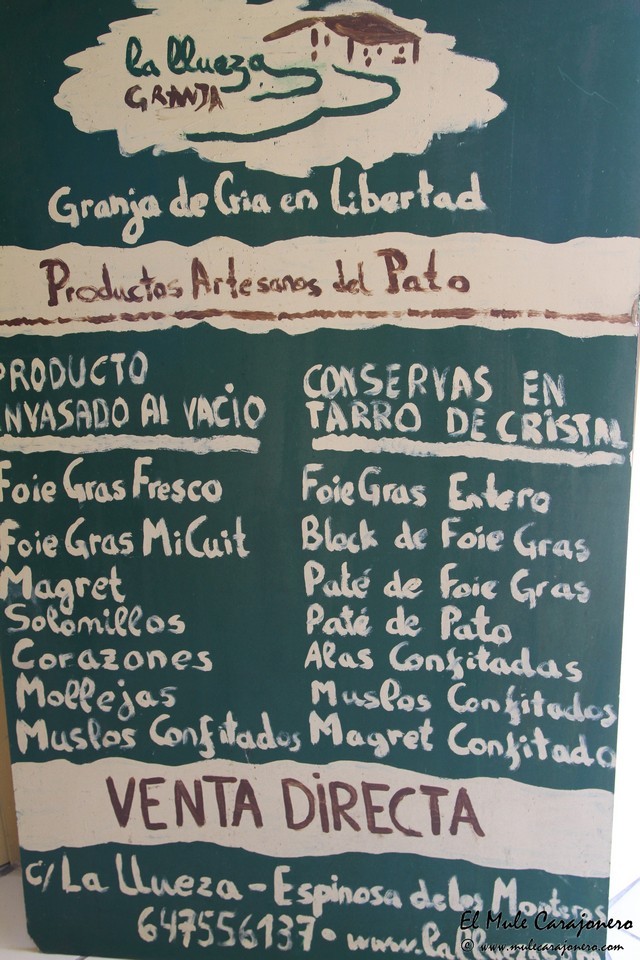 la llueza
GRANJA
Granja de Cria en Libertad
Productos Artesanos del Pato
PRODUCTO
ENVASADO AL VACIO
Foie Gras Fresco
Foie Gras MiCuit
Magret
Solomillos
Corazones
Mollejas
Muslos Confitados
CONSERVAS EN
TARRO DE CRISTAL
Foie Gras Entero
Block de Foie Gras
Paté de Foie Gras
Paté de Pato
Alas Confitadas
Muslos Confitados
Magret Confitado
VENTA DIRECTA
C/ La Llueza - Espinosa de los Monteros
647556137 •
El Mule Carajonero
© www.mulecarajonero.com